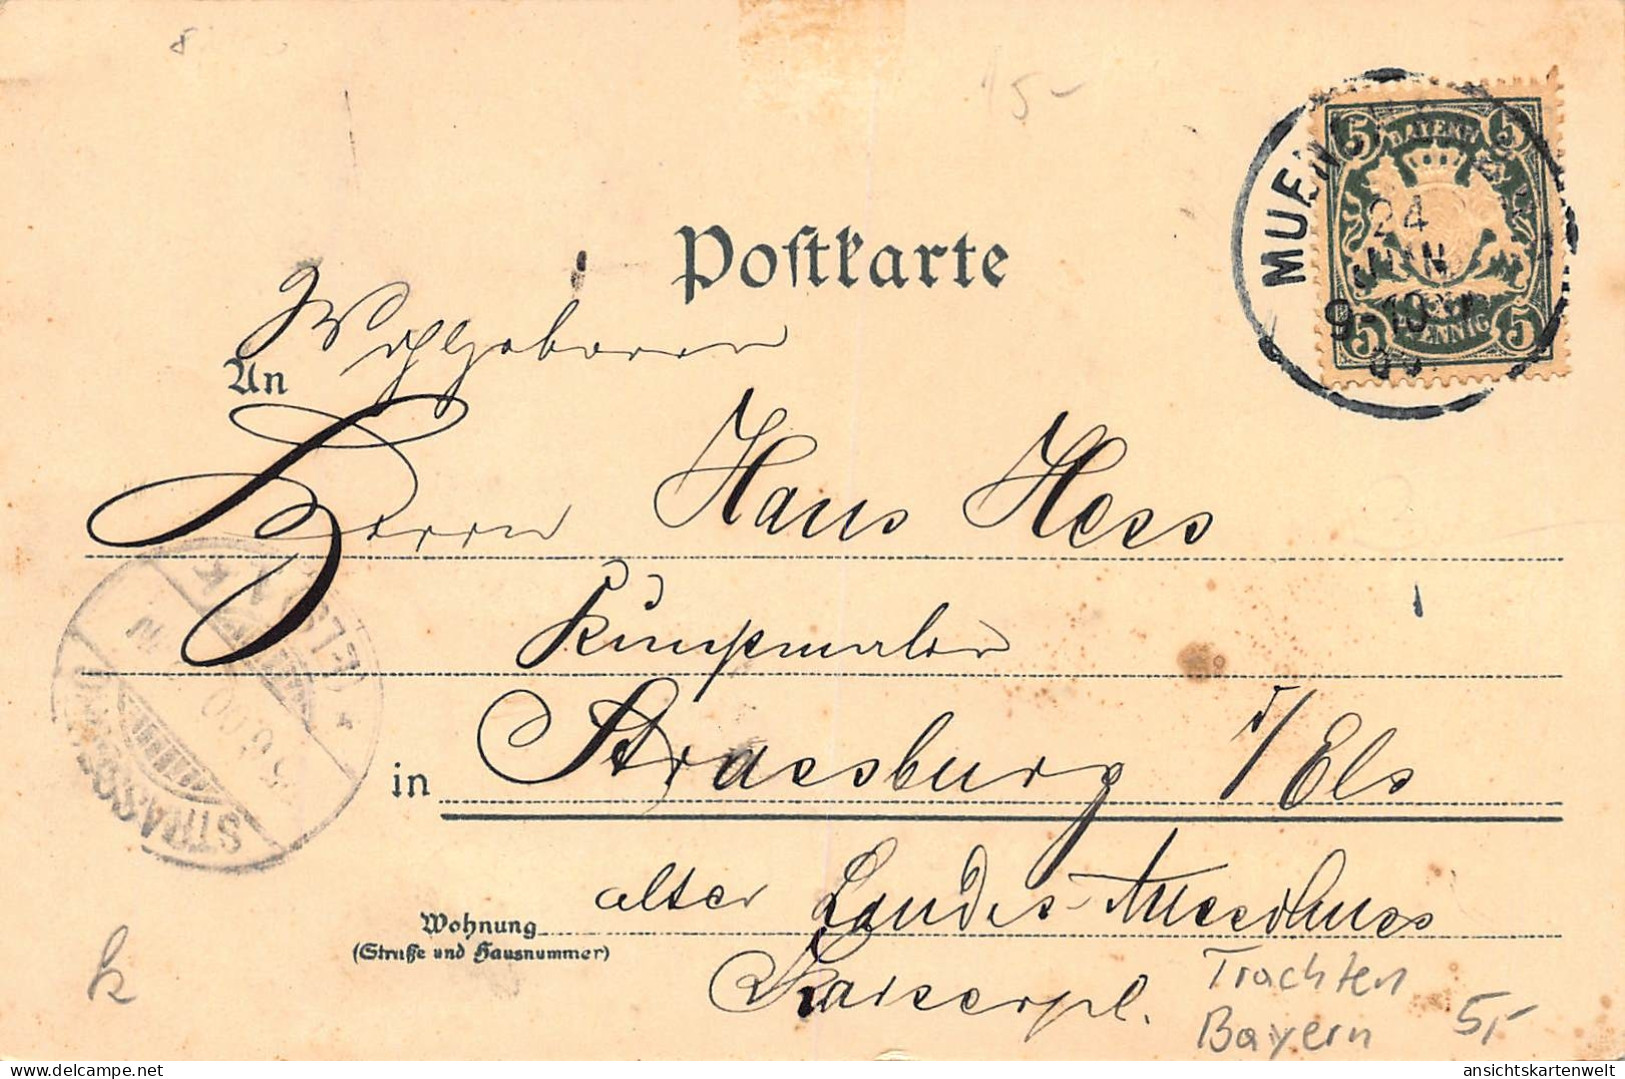 15-
Postkarte
BAYERN
5 5
24
JUN
9-10
PFENNIG
5 5
Wohlgeboren
An
Herrn Hans Hess
Kunstmaler
in Strassburg i/Els
alter Landes-Ausschuss
Wohnung
(Straße und Hausnummer)
Kaiserpl.
STRASSBURG
Trachten
Bayern 5,-
ansichtskartenwelt